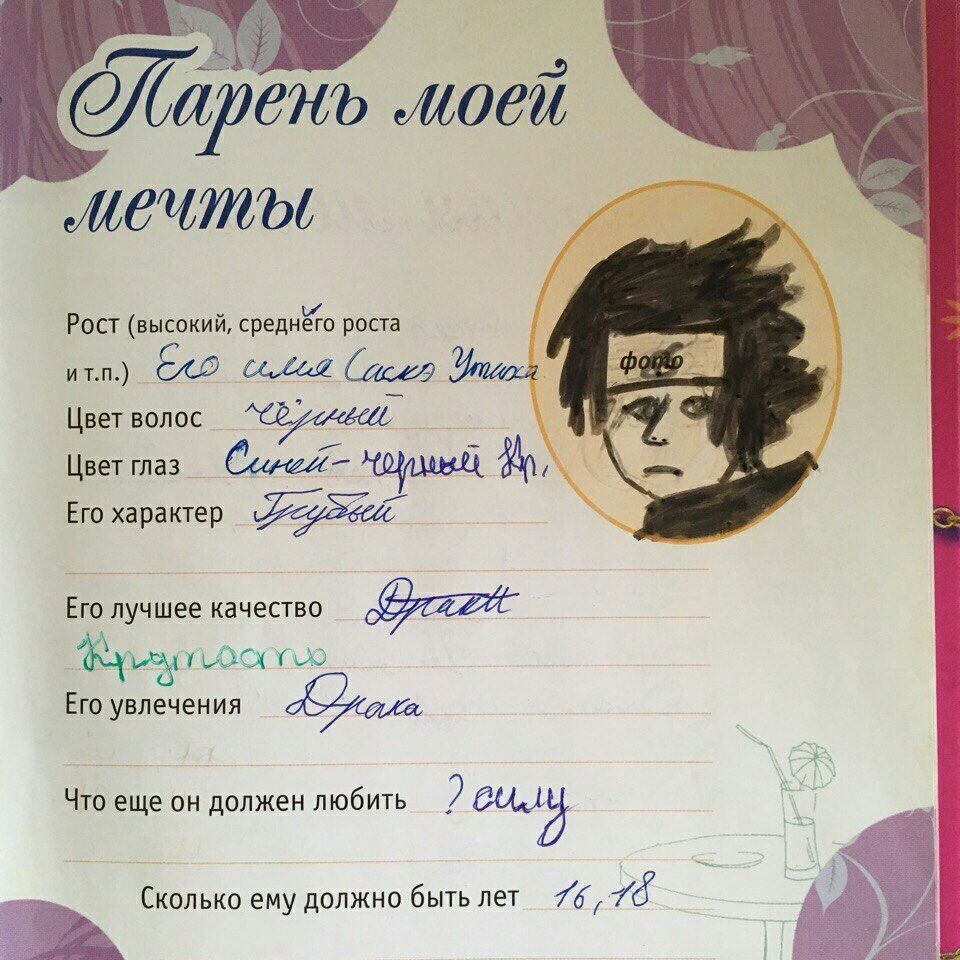 Парень моей
мечты
Рост (высокий, среднего роста
и т.п.) Его имя Саскэ Учиха
фото
Цвет волос чёрный
Цвет глаз Синей-черный Кр.
Его характер Грубый
Его лучшее качество Драки
Крутость
Его увлечения Драка
Что еще он должен любить ? силу
Сколько ему должно быть лет 16, 18